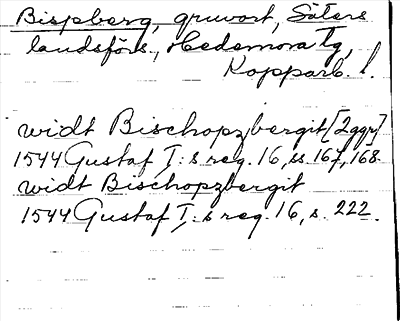 Bispberg, gruvort, Säters
landsförs., Hedemora tg,
Kopparb. l.
widt Bischopzbergit [2 ggr]
1544 Gustaf I:s reg. 16, ss. 167, 168.
widt Bischopzbergit
1544 Gustaf I:s reg. 16, s. 222.